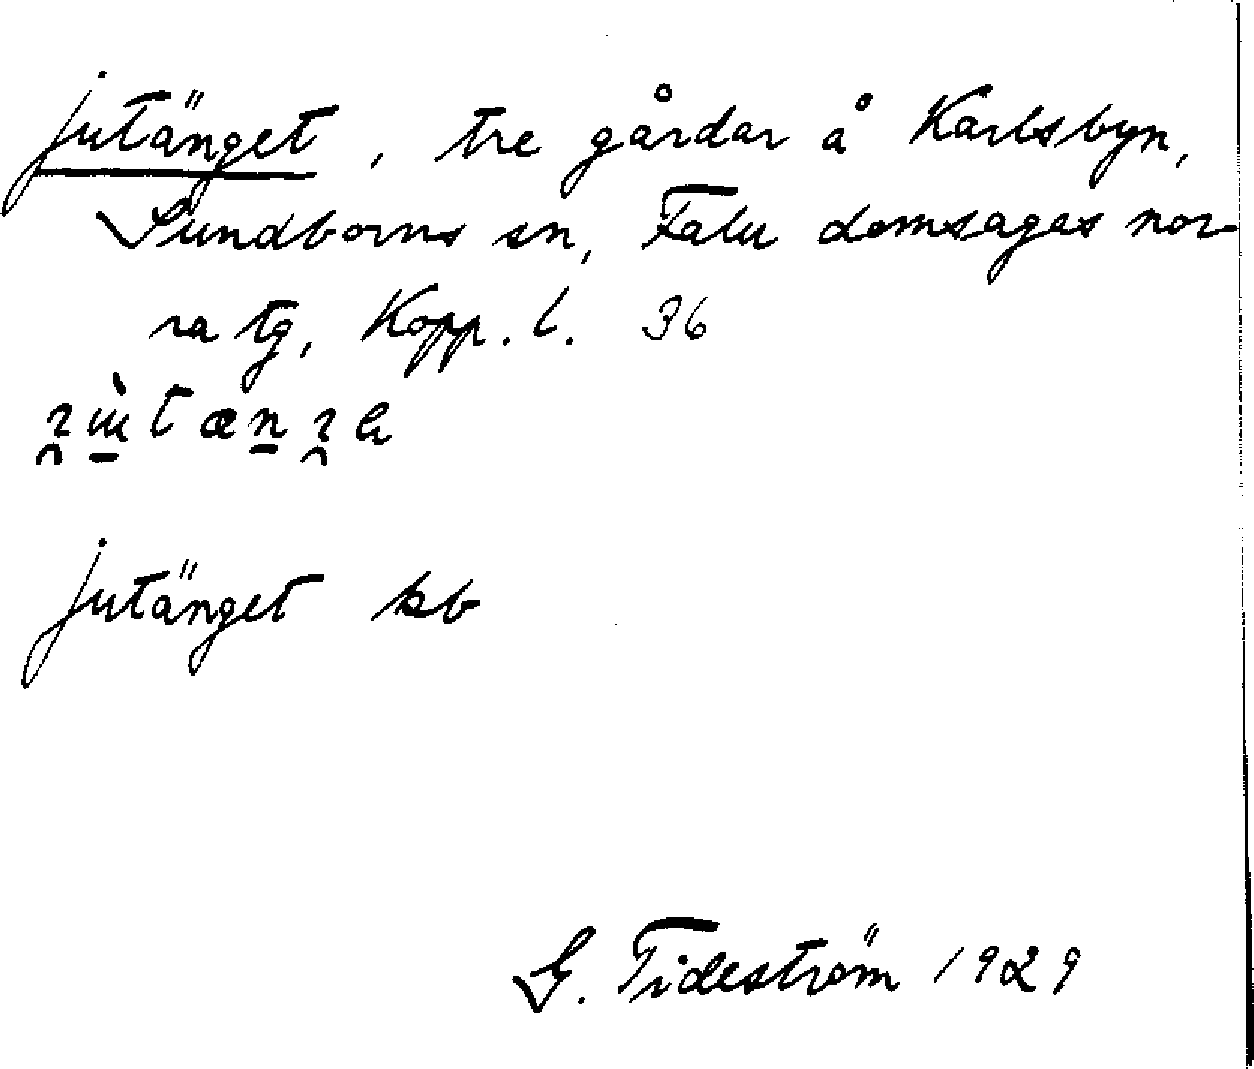 Jutänget, tre gårdar å Karlsbyn,
Sundborns sn, Falu domsagas nor-
ra tg, Kopp. l. 36
Jutänget kb
G. Tideström 1929